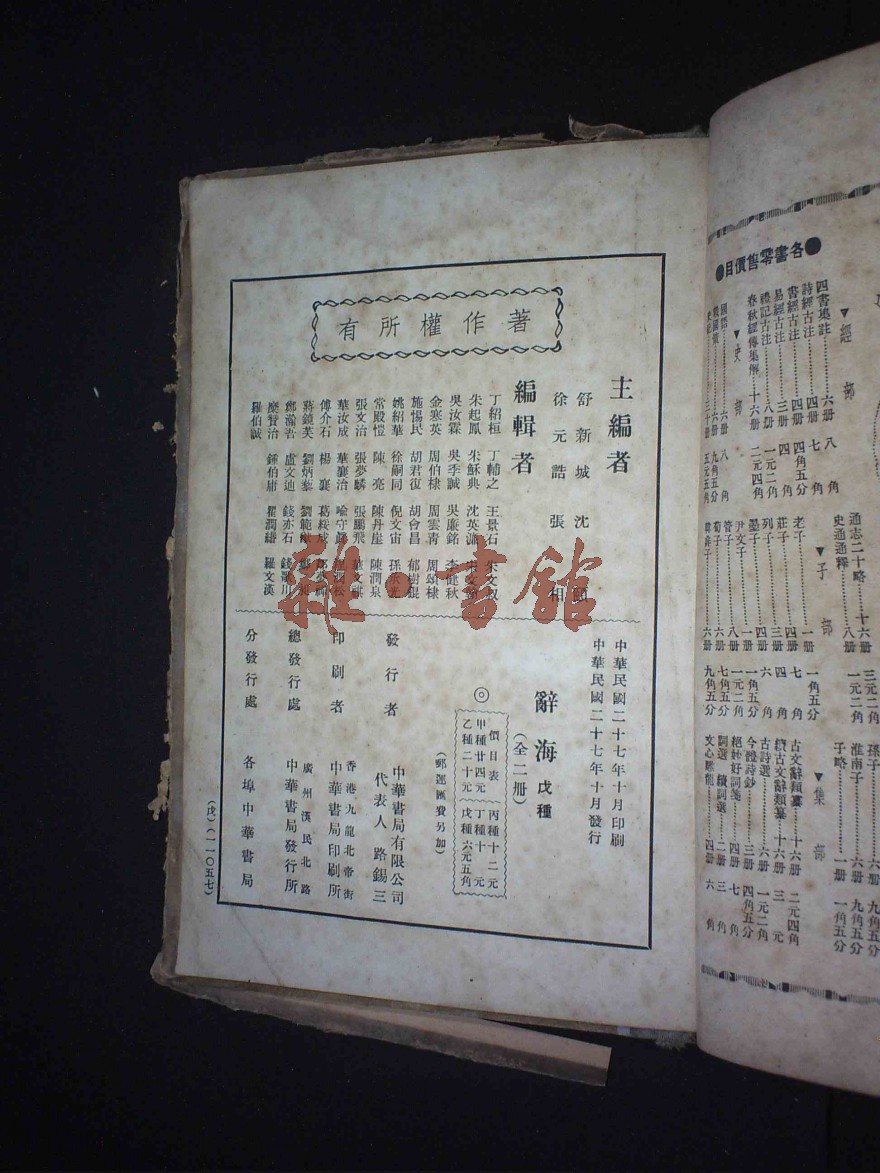 著作權所有
主編者
舒新城 沈頤
徐元誥 張相
編輯者
丁紹桓 丁輔之 王景石 朱文叔
朱起鳳 朱穌典 沈英
吳汝霖 吳季誠 吳廉銘 李健秋
金寒英 周伯棣 周雲青 周頌棣
施惕民 胡君復 胡曾昌 郁樹錕
姚紹華 徐嗣同 倪文宙 孫
常殿愷 陳亮 陳丹崖 陳潤泉
張文治 張夢麟 張鵬飛
華汝成 華襄治 喻守
傅介石 楊襄 葛綏成
蔣鏡芙 劉炳藜 劉範
鄭瀚吾 盧文迪 錢亦石 錢歌川
糜贊治 鍾伯庸 瞿潤緡 羅文漢
羅伯誠
中華民國二十七年十月印刷
中華民國二十七年十月發行
辭海 戊種
(全二冊)
◎價目表
甲種廿四元 丙種十二元
乙種二十元 丁種十元
戊種六元五角
(郵運匯費另加)
發行者 中華書局有限公司
代表人 路錫三
印刷者 香港九龍北帝街
中華書局印刷所
總發行處 廣州漢民北路
中華書局發行所
分發行處 各埠中華書局
(戊)(一一〇五七)
●各書零售價目●
▼經部
四書集註 六冊 八角
詩經古注 四冊 七角
書經古注 四冊 四角五分
易經古注 三冊 四角
禮記古注 八冊 一元二角
春秋經傳集解 十六冊 二元四角
▼史部
國語 六冊 八角
通志二十略 十六冊 三元
史通通釋 八冊 一元二角
▼子部
老子 一冊 一角五分
莊子 四冊 七角
列子 二冊 四角
墨子 四冊 六角
尹文子 一冊 一角五分
管子 八冊 一元二角
荀子 六冊 七角五分
六冊 九角五分
孫子 六冊 九角五分
淮南子 六冊 九角五分
子略 一冊 一角五分
▼集部
古文辭類纂 十六冊 二元四角
續古文辭類纂 十六冊 三元
古詩選 六冊 一元二角
今體詩鈔 二冊 四角五分
絕妙好詞箋 四冊 七角
詞選 續詞選 二冊 三角
文心雕龍 四冊 六角
雜·書館